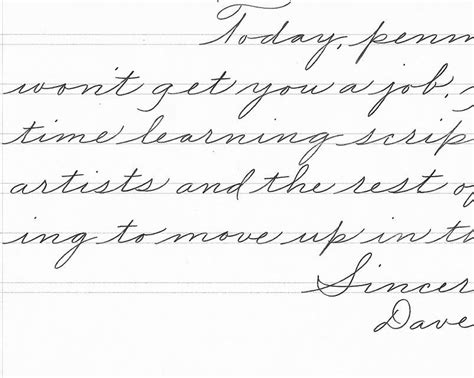 Today, penm
won't get you a job,
time learning scrip
artists and the rest o
ing to move up in th
Sincer
Dave